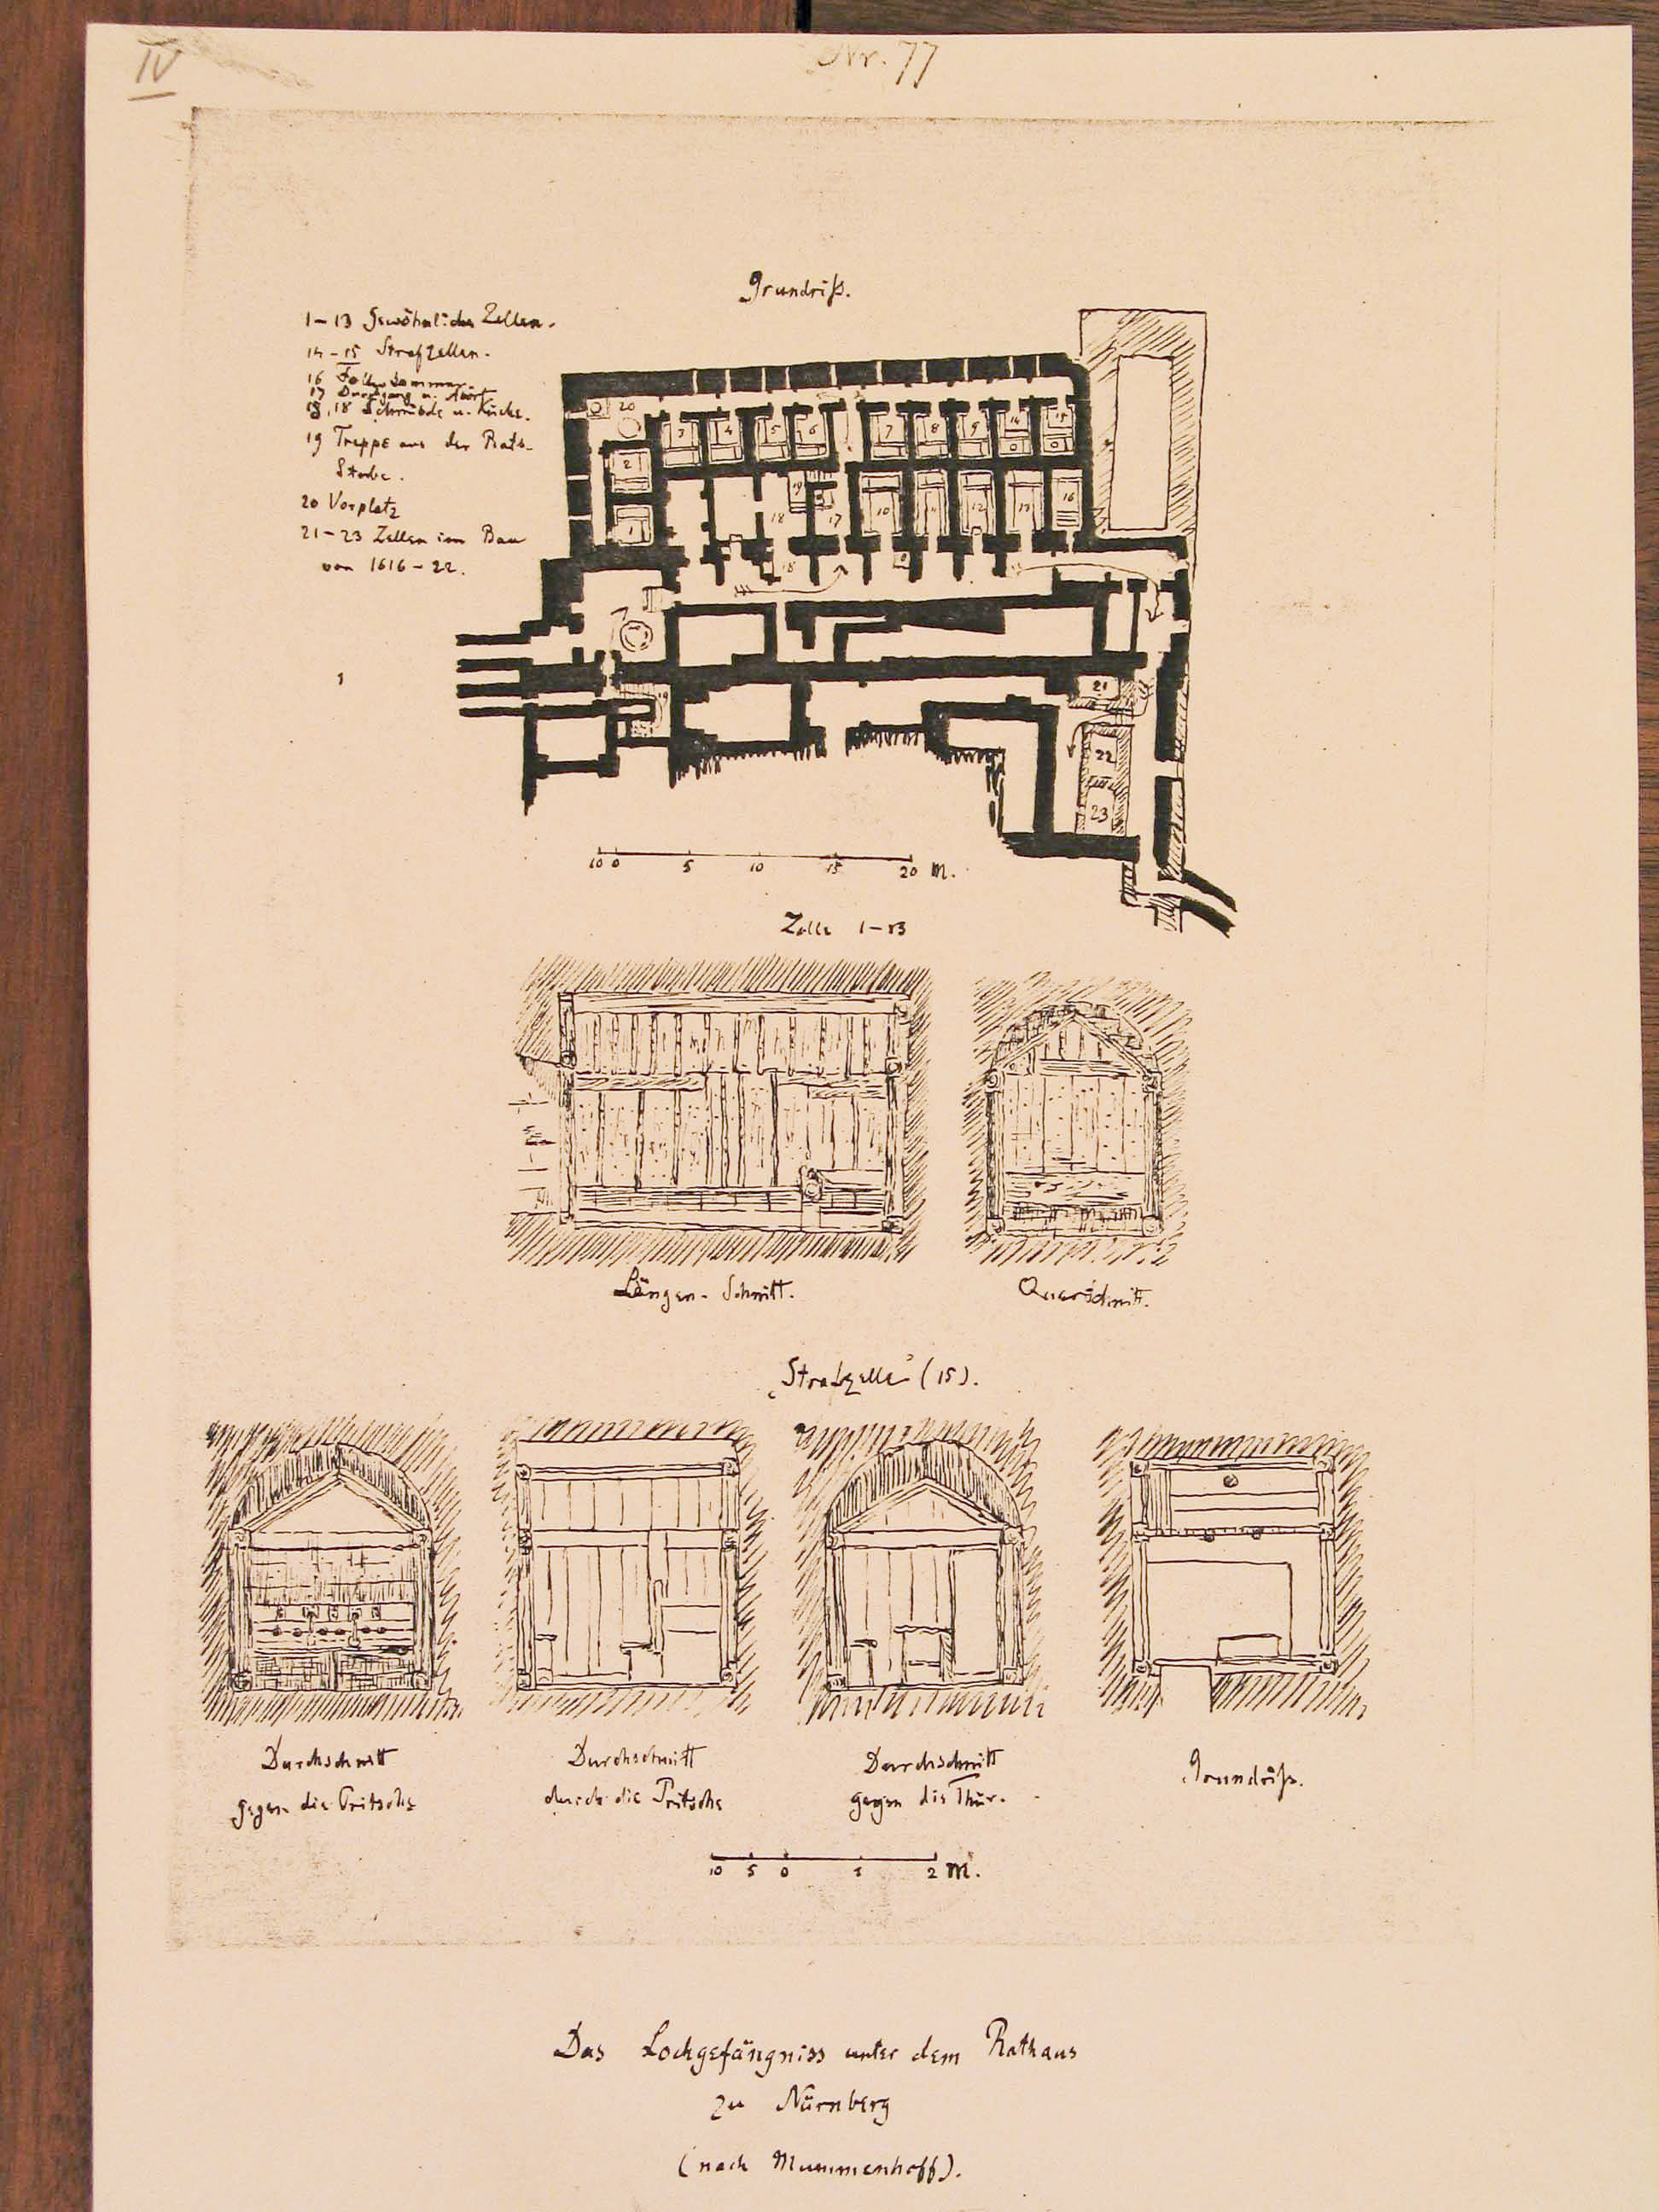 IV
Nr. 77
Grundriß.
1-13 Gewöhnliche Zellen.
14-15 Strafzellen.
16
17 Durchgang u. Abort
18, 18 u. Küche.
19 Treppe aus der Rats-
Stube.
20 Vorplatz
21-23 Zellen im Bau
von 1616-22.
20
3 4 5 6 7 8 9 14 15
2
1
19
18 17 10 11 12 13 16
18
19
21
22
23
10 0 5 10 15 20 m.
Zelle 1-13
Längen-Schnitt.
Querschnitt.
„Strafzelle" (15).
Durchschnitt
gegen die Pritsche
Durchschnitt
durch die Pritsche
Durchschnitt
gegen die Thür.
Grundriß.
10 5 0 1 2 m.
Das Lochgefängniss unter dem Rathaus
zu Nürnberg
(nach Mummenhoff).